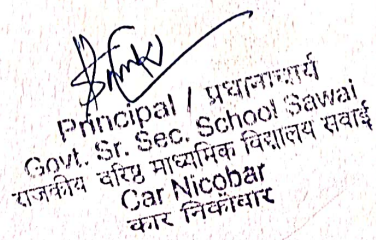 Principal / प्रधानाचार्य
Govt. Sr. Sec. School Sawai
राजकीय वरिष्ठ माध्यमिक विद्यालय सवाई
Car Nicobar
कार निकोबार